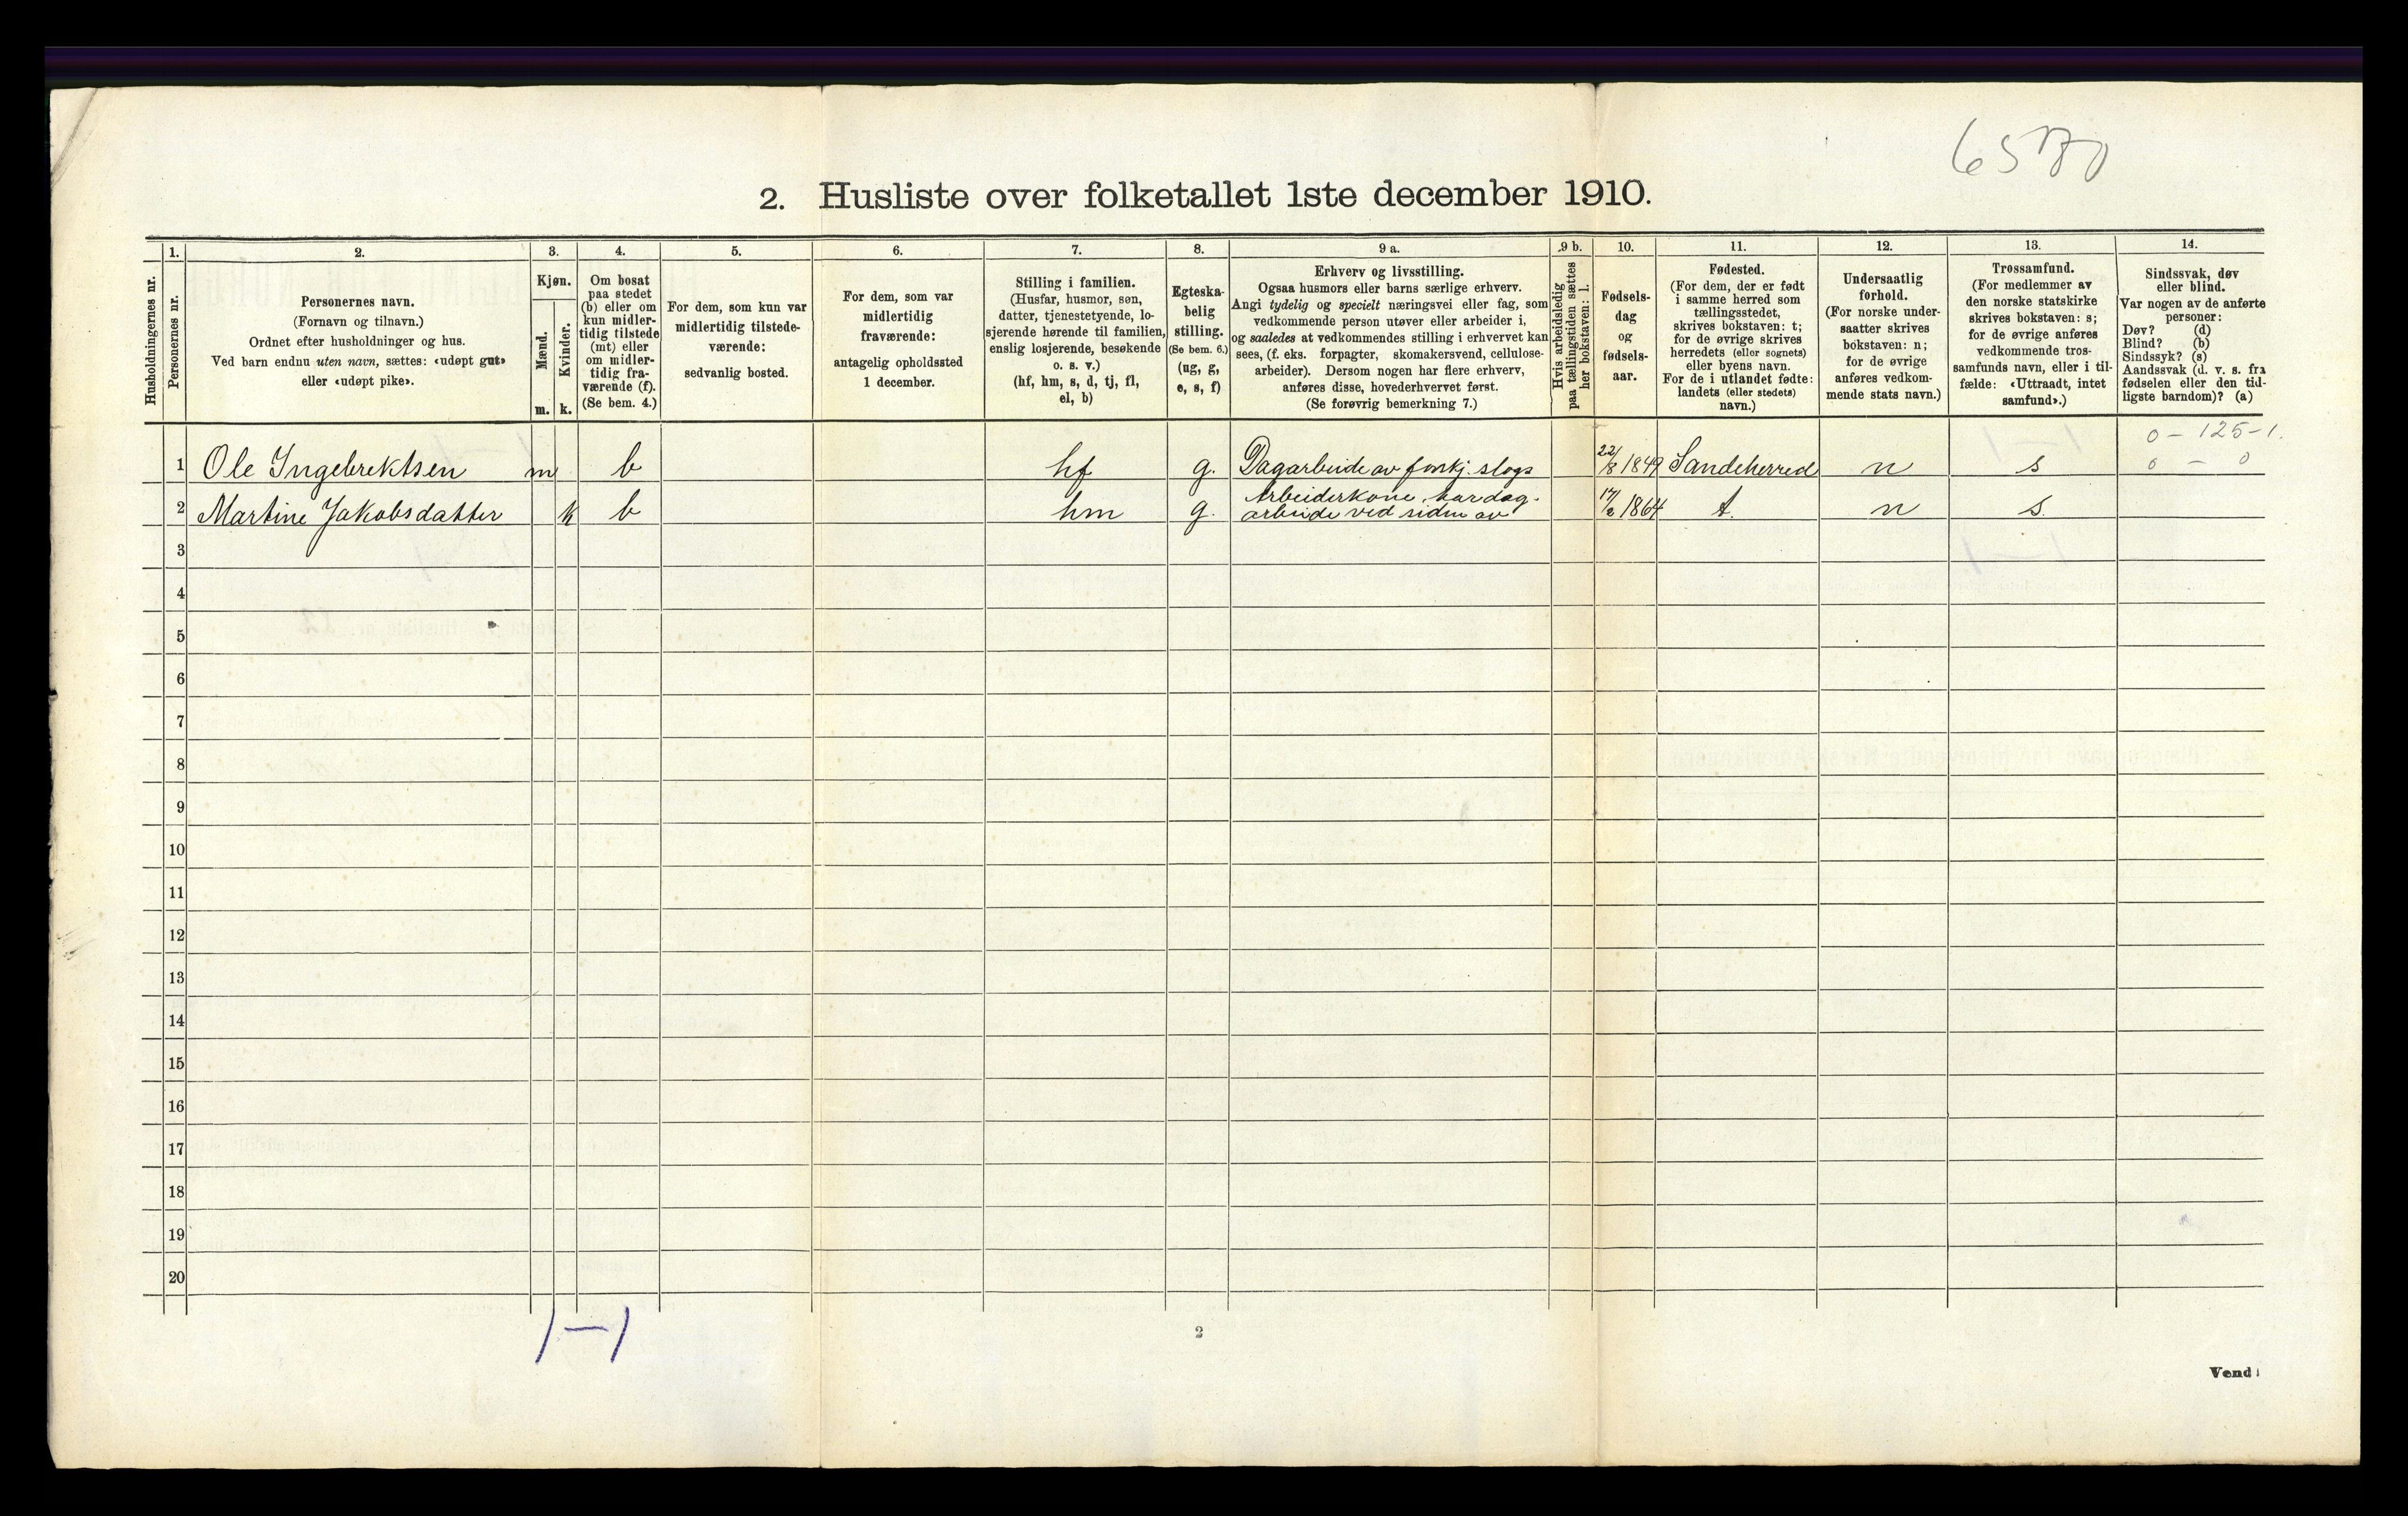 2. Husliste over folketallet 1ste december 1910.
1. 2. 3. 4. 5. 6. 7. 8. 9 a. 9 b. 10. 11. 12. 13. 14.
Husholdningernes nr.
Personernes nr.
Personernes navn.
(Fornavn og tilnavn.)
Ordnet efter husholdninger og hus.
Ved barn endnu uten navn, sættes: «udøpt gut»
eller «udøpt pike».
Kjøn.
Mænd.
m.
Kvinder.
k.
Om bosat
paa stedet
(b) eller om
kun midler-
tidig tilstede
(mt) eller
om midler-
tidig fra-
værende (f).
(Se bem. 4.)
For dem, som kun var
midlertidig tilstede-
værende:
sedvanlig bosted.
For dem, som var
midlertidig
fraværende:
antagelig opholdssted
1 december.
Stilling i familien.
(Husfar, husmor, søn,
datter, tjenestetyende, lo-
sjerende hørende til familien,
enslig losjerende, besøkende
o. s. v.)
(hf, hm, s, d, tj, fl,
el, b)
Egteska-
belig
stilling.
(Se bem. 6.)
(ug, g,
e, s, f)
Erhverv og livsstilling.
Ogsaa husmors eller barns særlige erhverv.
Angi tydelig og specielt næringsvei eller fag, som
vedkommende person utøver eller arbeider i,
og saaledes at vedkommendes stilling i erhvervet kan
sees, (f. eks. forpagter, skomakersvend, cellulose-
arbeider). Dersom nogen har flere erhverv,
anføres disse, hovederhvervet først.
(Se forøvrig bemerkning 7.)
Hvis arbeidsledig
paa tællingstiden sættes
her bokstaven: l.
Fødsels-
dag
og
fødsels-
aar.
Fødested.
(For dem, der er født
i samme herred som
tællingsstedet,
skrives bokstaven: t;
for de øvrige skrives
herredets (eller sognets)
eller byens navn.
For de i utlandet fødte:
landets (eller stedets)
navn.)
Undersaatlig
forhold.
(For norske under-
saatter skrives
bokstaven: n;
for de øvrige
anføres vedkom-
mende stats navn.)
Trossamfund.
(For medlemmer av
den norske statskirke
skrives bokstaven: s;
for de øvrige anføres
vedkommende tros-
samfunds navn, eller i til-
fælde: «Uttraadt, intet
samfund».)
Sindssvak, døv
eller blind.
Var nogen av de anførte
personer:
Døv? (d)
Blind? (b)
Sindssyk? (s)
Aandssvak (d. v. s. fra
fødselen eller den tid-
ligste barndom)? (a)
0 - 125-1.
1 Ole Ingebrektsen m b hf g. Dagarbeide av forskj. slags 22/8 1849 Sandeherred n s 0 - 0
Arbeiderkone, har dag-
2 Martine Jakobsdatter k b hm g. arbeide ved siden av 17/2 1864 t. n s.
3
4
5
6
7
8
9
10
11
12
13
14
15
16
17
18
19
20
1-1
2
Vend!